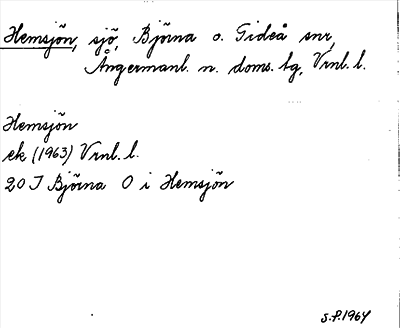 Hemsjön, sjö, Björna o. Gideå snr,
Ångermanl. n. doms. tg, Vrnl. l.
Hemsjön
ek (1963) Vrnl. l.
20 J Björna O i Hemsjön
S.P. 1964